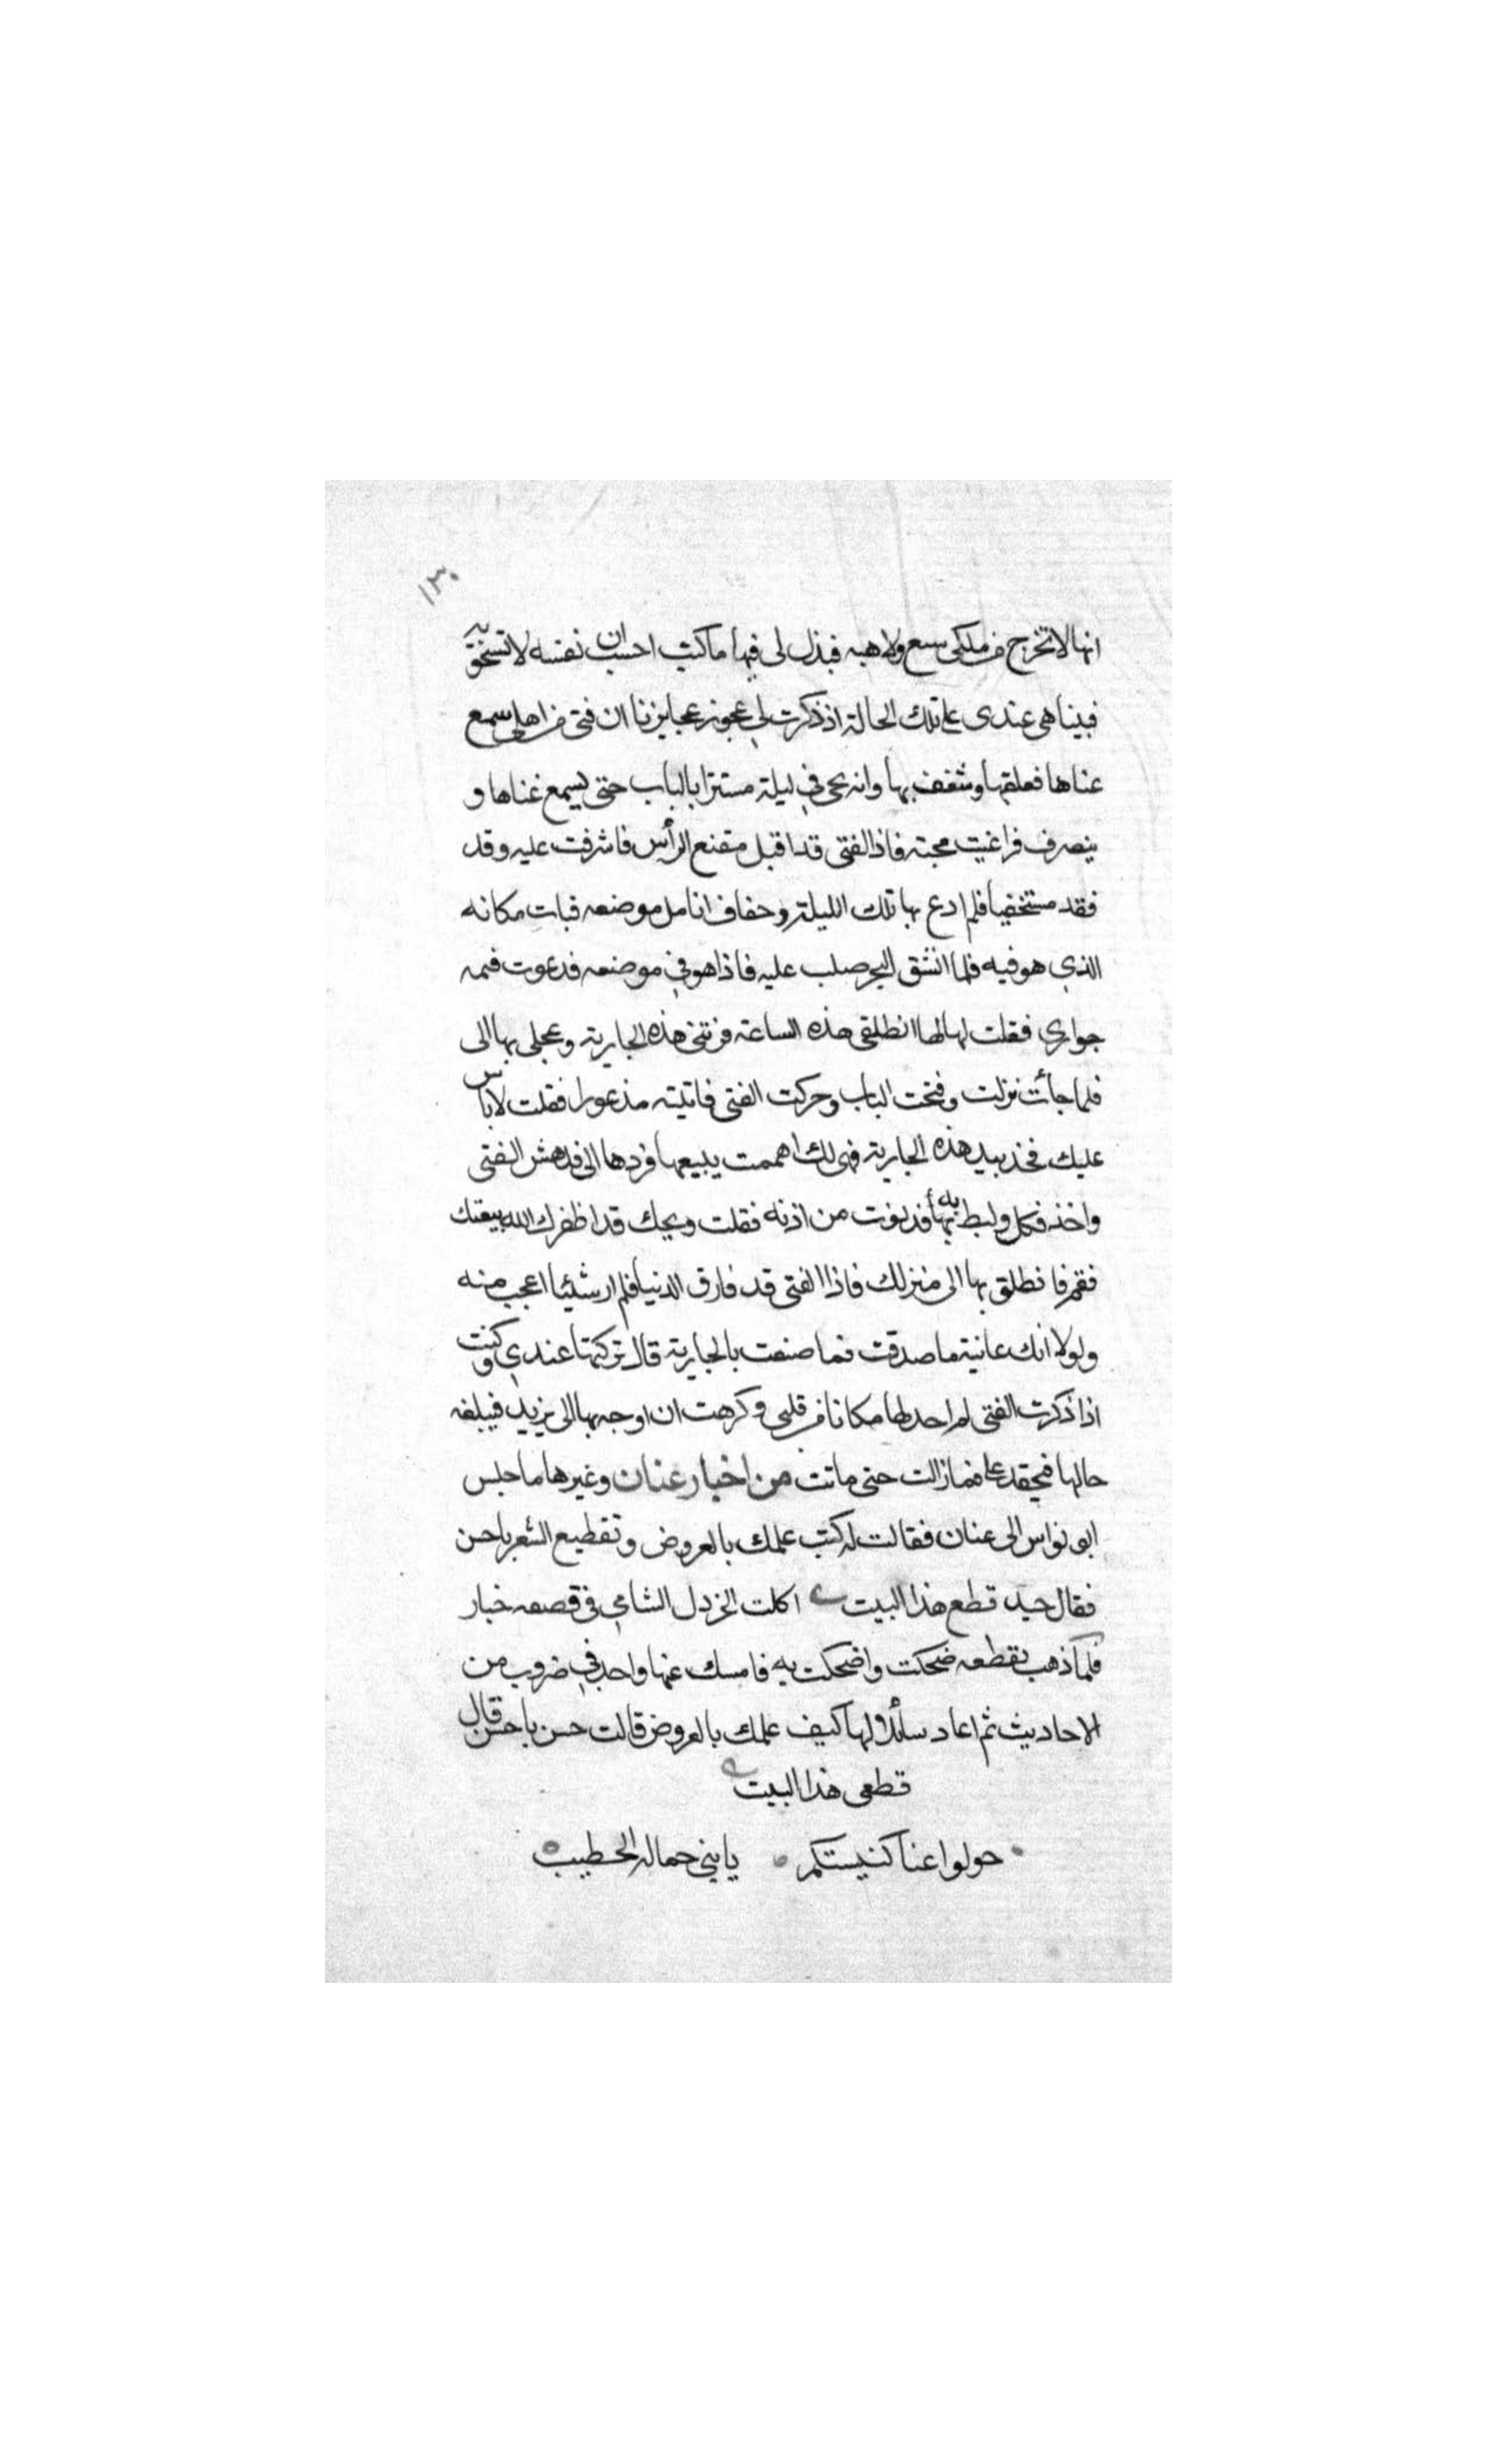 ١٣٠
انها لا تخرج من ملكي ببيع ولا هبه فبذل لي فيها ما كنت احسب ان نفسه لا تسخو به
فبينا هي عندي على تلك الحالة اذ ذكرت لي عجوز عجايزنا ان فتى من اهلي سمع
عناها فعلقها وشغف بها وانه يجى في ليلة مستترا بالباب حتى يسمع غناها و
ينصرف فراغيت مجيته فاذا الفتى قد اقبل مقنع الرأس فاشرفت عليه وقد
فقد مستخفيا فلم ادع بها تلك الليلة و انامل موضعه فبات مكانه
الذي هو فيه فلما انشق الفجر عليه فاذا هو في موضعه فدعوت
جواري فقلت لها انطلقي هذه الساعة هذه الجارية وعجلي بها الى
فلما جأت نزلت وفتحت الباب وحركت الفتى مذعورا فقلت لا باس
عليك فخذ بيد هذه الجارية فهى لك اهممت ببيعها فردها الى فدهش الفتى
واخذه ولبط به فدنوت من اذنه فقلت ويحك قد اظفرك الله ببغيتك
فقم فانطلق بها الى منزلك فاذا الفتى قد فارق الدنيا فلم ار شئيا اعجب منه
ولولا انك ما صدقت فما صنعت بالجارية قال تركتها عندي وكنت
اذا ذكرت الفتى لم اجد لها مكانا من قلبي وكرهت ان اوجه بها الى يزيد فيبلغه
حالها فيحقد على فما زالت حتى ماتت من اخبار عنان وغيرها ما جلس
ابو نواس الى عنان فقالت له كيف علمك بالعروض وتقطيع الشعر يا حسن
فقال جيد قطع هذا البيت اكلت الخردل الشامي في قصعه خبار
فلما ذهب يقطعه ضحكت واضحكت به فامسك عنها واخذ في ضروب من
الاحاديث ثم اعاد سائلا لها كيف علمك بالعروض قالت حسن يا حسن قال
قطعى هذا البيت
حولوا عنا كنيستكم يا بني حمالة الحطب